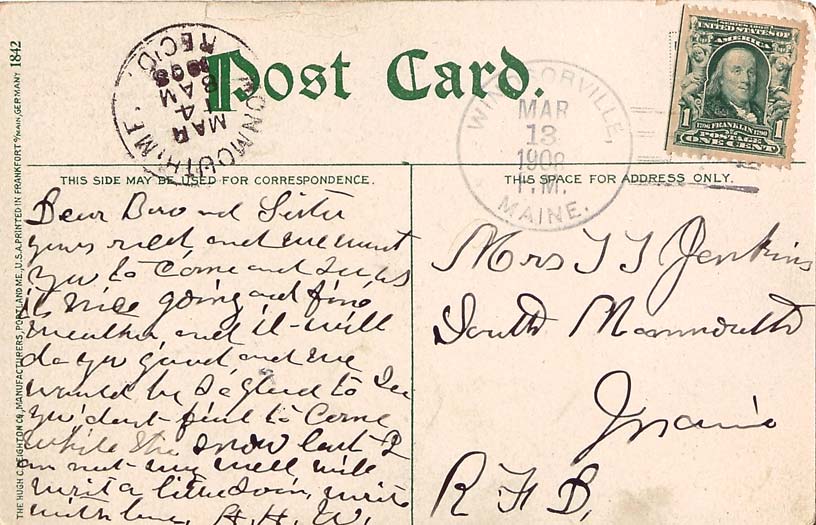 Post Card.
MONMOUTH, ME.
MAR
4
8 AM
1908
REC'D.
WINDSORVILLE,
MAR
13
1908
P.M.
MAINE.
SERIES 1902
UNITED STATES OF
AMERICA
1 1706 FRANKLIN 1790 1
POSTAGE
ONE CENT
THIS SIDE MAY BE USED FOR CORRESPONDENCE.
THIS SPACE FOR ADDRESS ONLY.
THE HUGH C. LEIGHTON CO., MANUFACTURERS, PORTLAND, ME., U.S.A. PRINTED IN FRANKFORT o/MAIN, GERMANY 1842
Dear Bro and Sister
yours recd and we want
you to come and see us
its nice going and fine
weather and it will
do you good and we
would be so glad to see
you dont fail to come
while the snow last I
am not very well will
writ a little soon, write
with love, H. H. W.
Mrs T J Jenkins
South Monmouth
Maine
R F D,